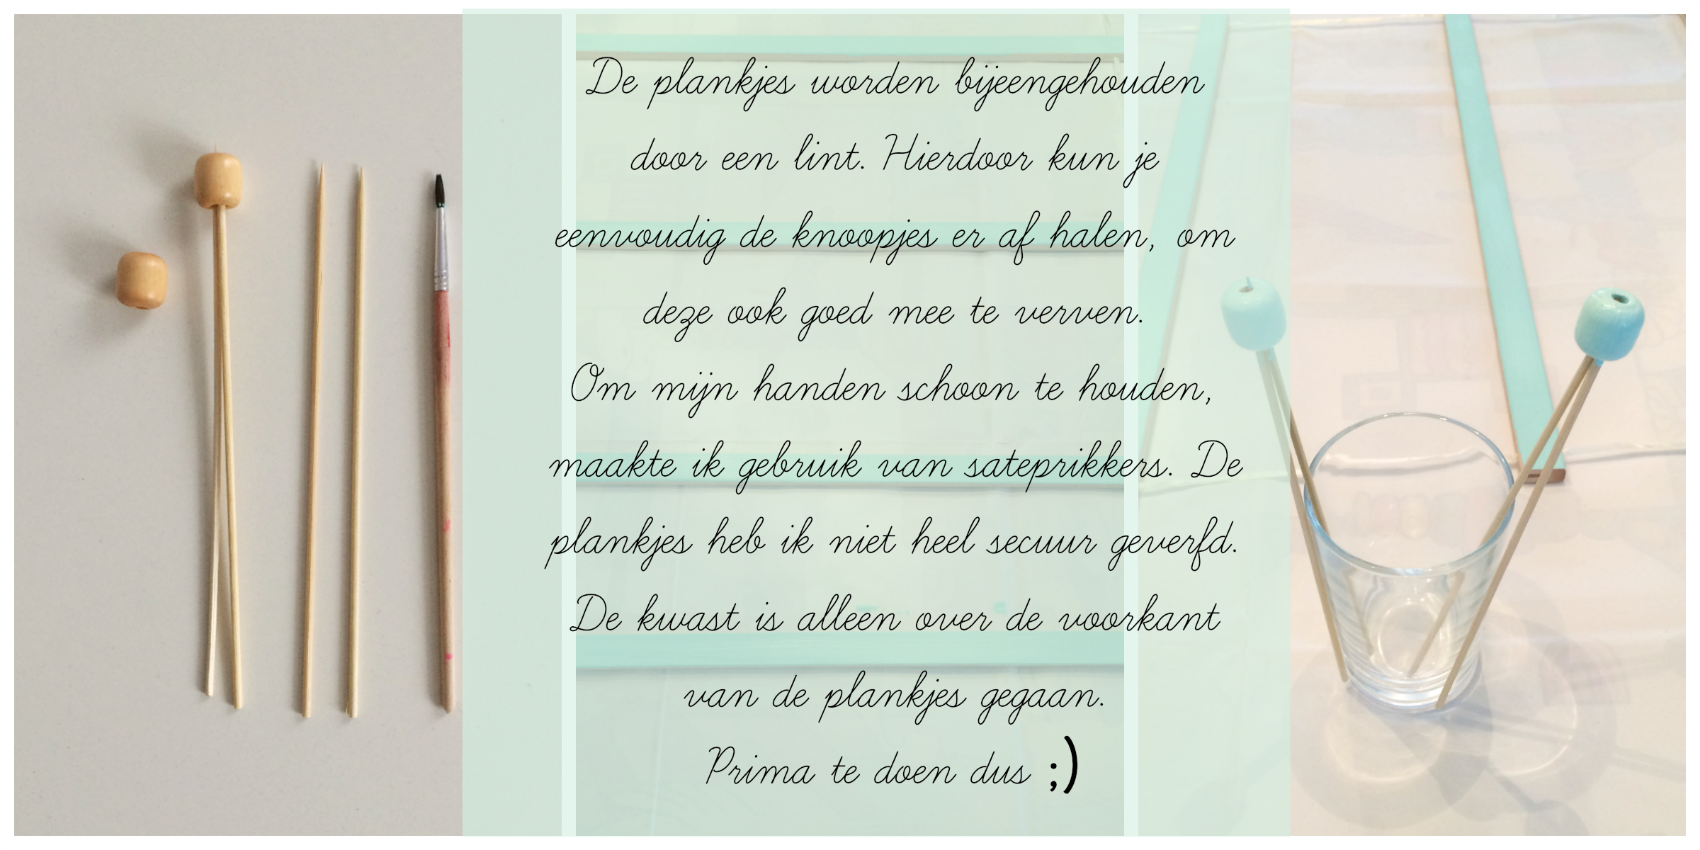 De plankjes worden bijeengehouden
door een lint. Hierdoor kun je
eenvoudig de knoopjes er af halen, om
deze ook goed mee te verven.
Om mijn handen schoon te houden,
maakte ik gebruik van sateprikkers. De
plankjes heb ik niet heel secuur geverfd.
De kwast is alleen over de voorkant
van de plankjes gegaan.
Prima te doen dus ;)